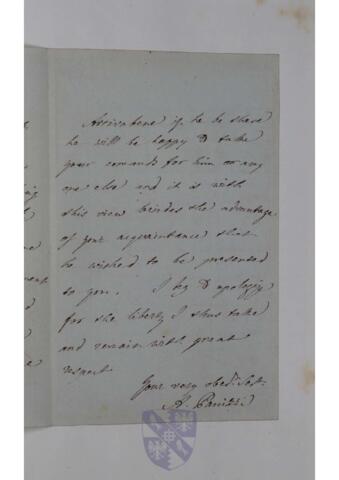 Arrivabene if he be there
he will be happy to take
your comands for him or any
one else and it is with
this view besides the advantage
of your acquaintance that
he wished to be presented
to you. I beg to apologize
for the liberty I thus take
and remain with great
respect
Your very obed. Sert.
A. Panizzi